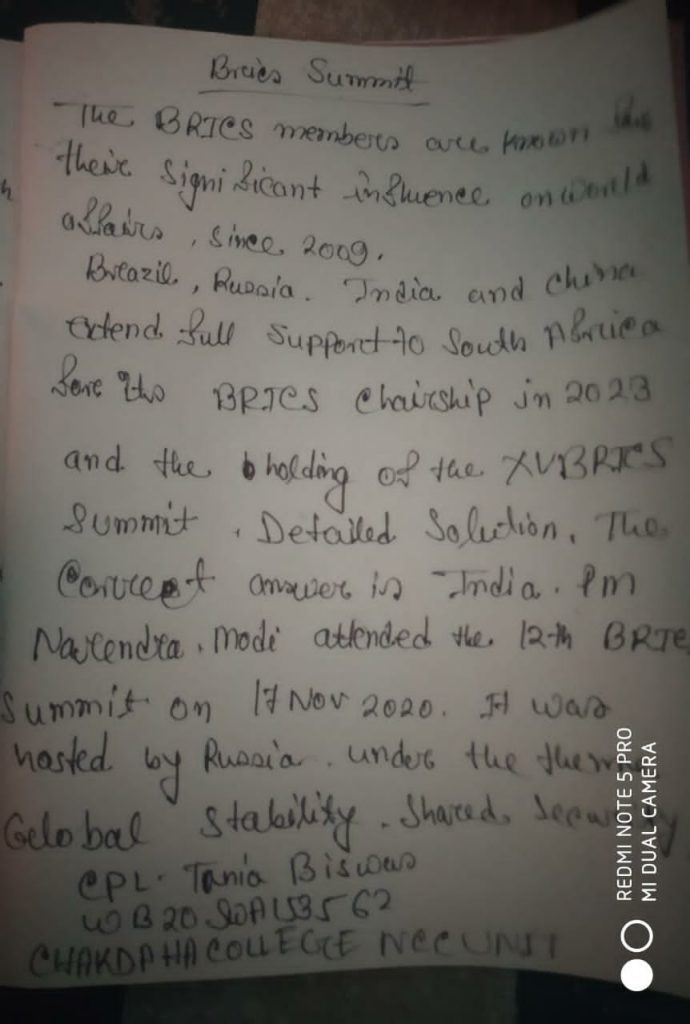 Brics Summit
The BRICS members are known for
their significant influence on world
affairs, since 2009.
Brazil, Russia. India and China
extend full support to South Africa
for its BRICS Chairship in 2023
and the holding of the XV BRICS
Summit. Detailed Solution. The
Correct answer is India. Pm
Narendra. Modi attended the 12th BRIC
Summit on 17 Nov 2020. It was
hosted by Russia. under the theme
Gelobal Stability. Shared. Security
CPL. Tania Biswas
CHAKDAHA COLLEGE NCC UNIT
REDMI NOTE 5 PRO
MI DUAL CAMERA